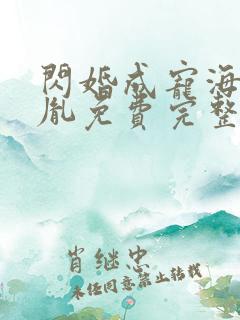 閃婚成寵海
胤免費完整
肖继忠
未经同意禁止转载